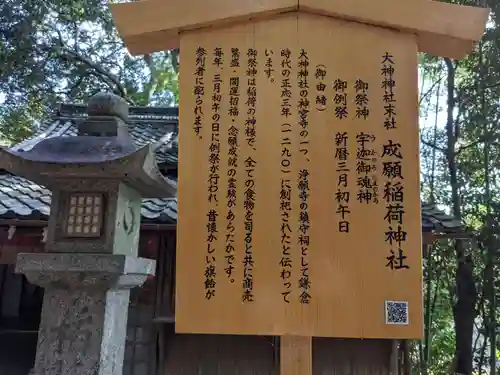 大神神社末社 成願稲荷神社
御祭神 宇迦御魂神
うかのみたまのかみ
御例祭 新暦三月初午日
(御由緒)
大神神社の神宮寺の一つ、浄願寺の鎮守祠として鎌倉
時代の正応三年(一二九〇)に創祀されたと伝わって
います。
御祭神は稲荷の神様で、全ての食物を司ると共に商売
繁盛・開運招福・念願成就の霊験があらたかです。
毎年、三月初午の日に例祭が行われ、昔懐かしい旗飴が
参列者に配られます。